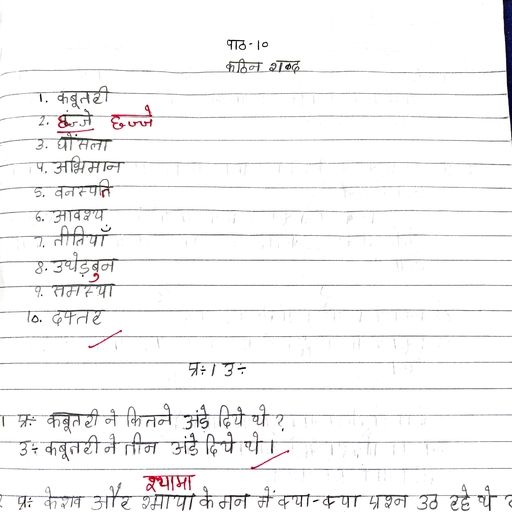 पाठ-१०
कठिन शब्द
1. कबूतरी
2. छंज्जे छज्जे
3. घोंसला
4. अभिमान
5. वनस्पति
6. आवश्य
7. तीतियाँ
8. उधेड़बुन
9. समस्या
10. दफ्तर
प्र÷ / उ÷
1 प्र÷ कबूतरी ने कितने अंडे दिये थे ?
उ÷ कबूतरी ने तीन अंडे दिये थे।
श्यामा
प्र÷ केशव और श्माया के मन में क्या-क्या प्रश्न उठ रहे थे ?